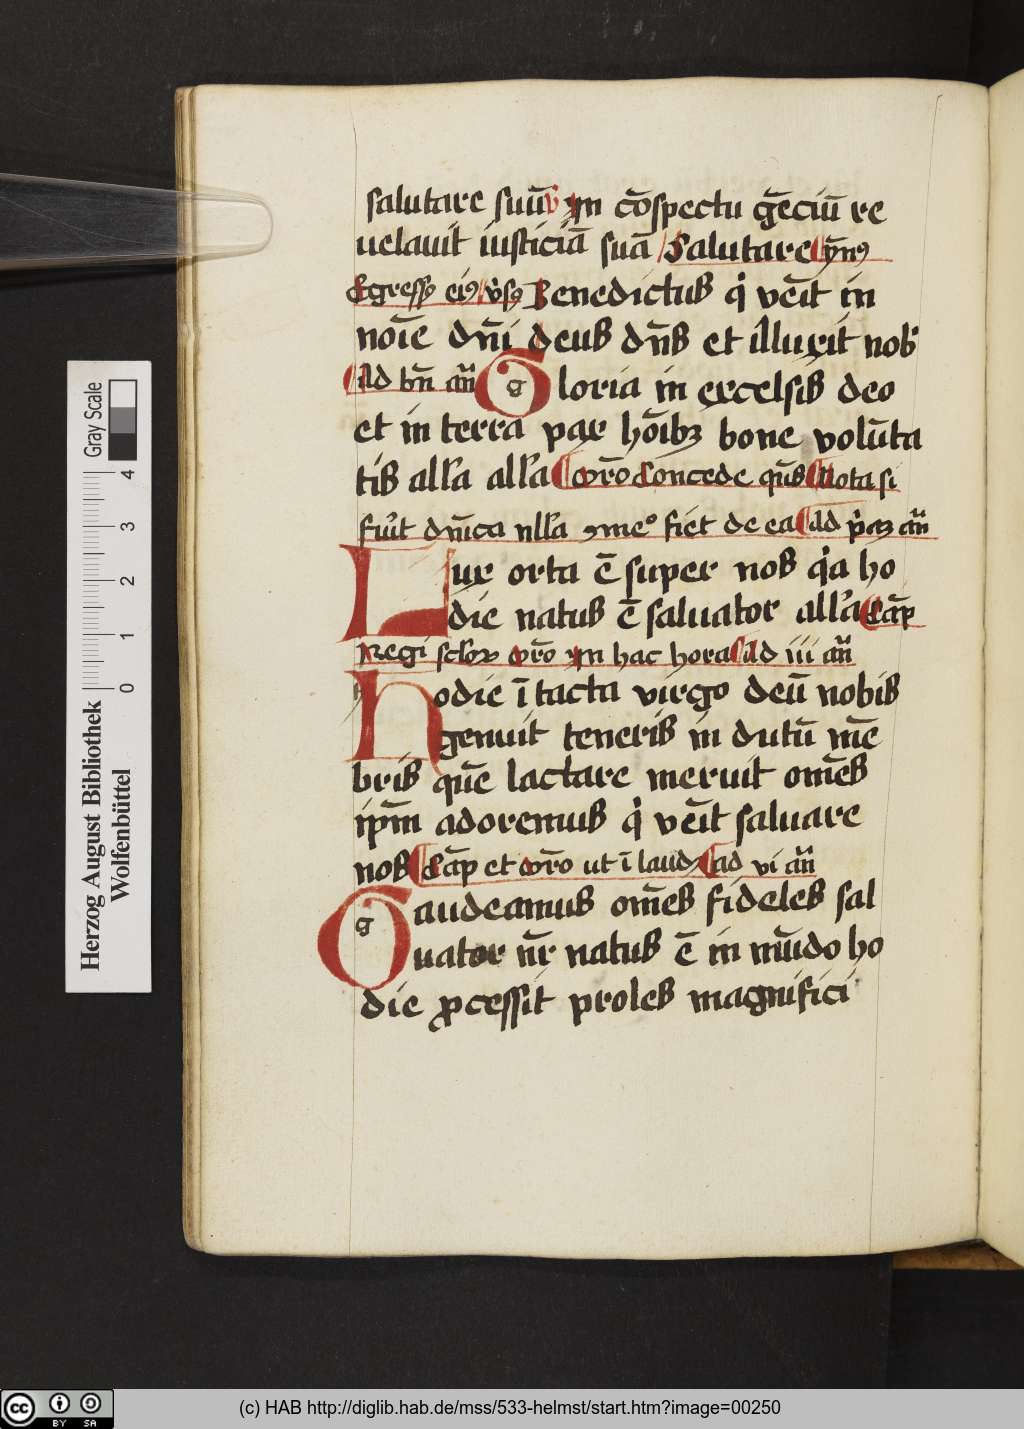 salutare suū v jn cōspectu gēciū re
uelauit iusticiā suā Salutare ymꝰ
Egressꝰ eiꝰ v̉sꝰ Benedictus qͥ vēit in
noīe dn̄i deus dn̄s et illuxit nob̉
Ad bn̄ an̄ Gloria in excelsis deo
et in terra pax hōibꝫ bone volūta
tis all'a all'a Orō Concede qͣs̄ Nota si
fuīt dn̄ica nll'a ꝯmeº fiet de ea Ad p̉aꝫ an̄
Lux orta ē super nos qͥa ho
die natus ē saluator all'a Cap̄
Regi sclor̄ Orō jn hac hora Ad iii an̄
Hodie ītacta virgo deū nobis
genuit teneris in dutū mē
bris quē lactare meruit om̄es
ip̄m adoremus qͥ vēit saluare
nos Cap̄ et Orō ut ī laudꝫ ad vi an̄
Gaudeamus om̄es fideles sal
uator nr̄ natus ē in mūdo ho
die ꝓcessit proles magnifici
Gray Scale
0 1 2 3 4
Herzog August Bibliothek
Wolfenbüttel
(c) HAB http://diglib.hab.de/mss/533-helmst/start.htm?image=00250
cc BY SA